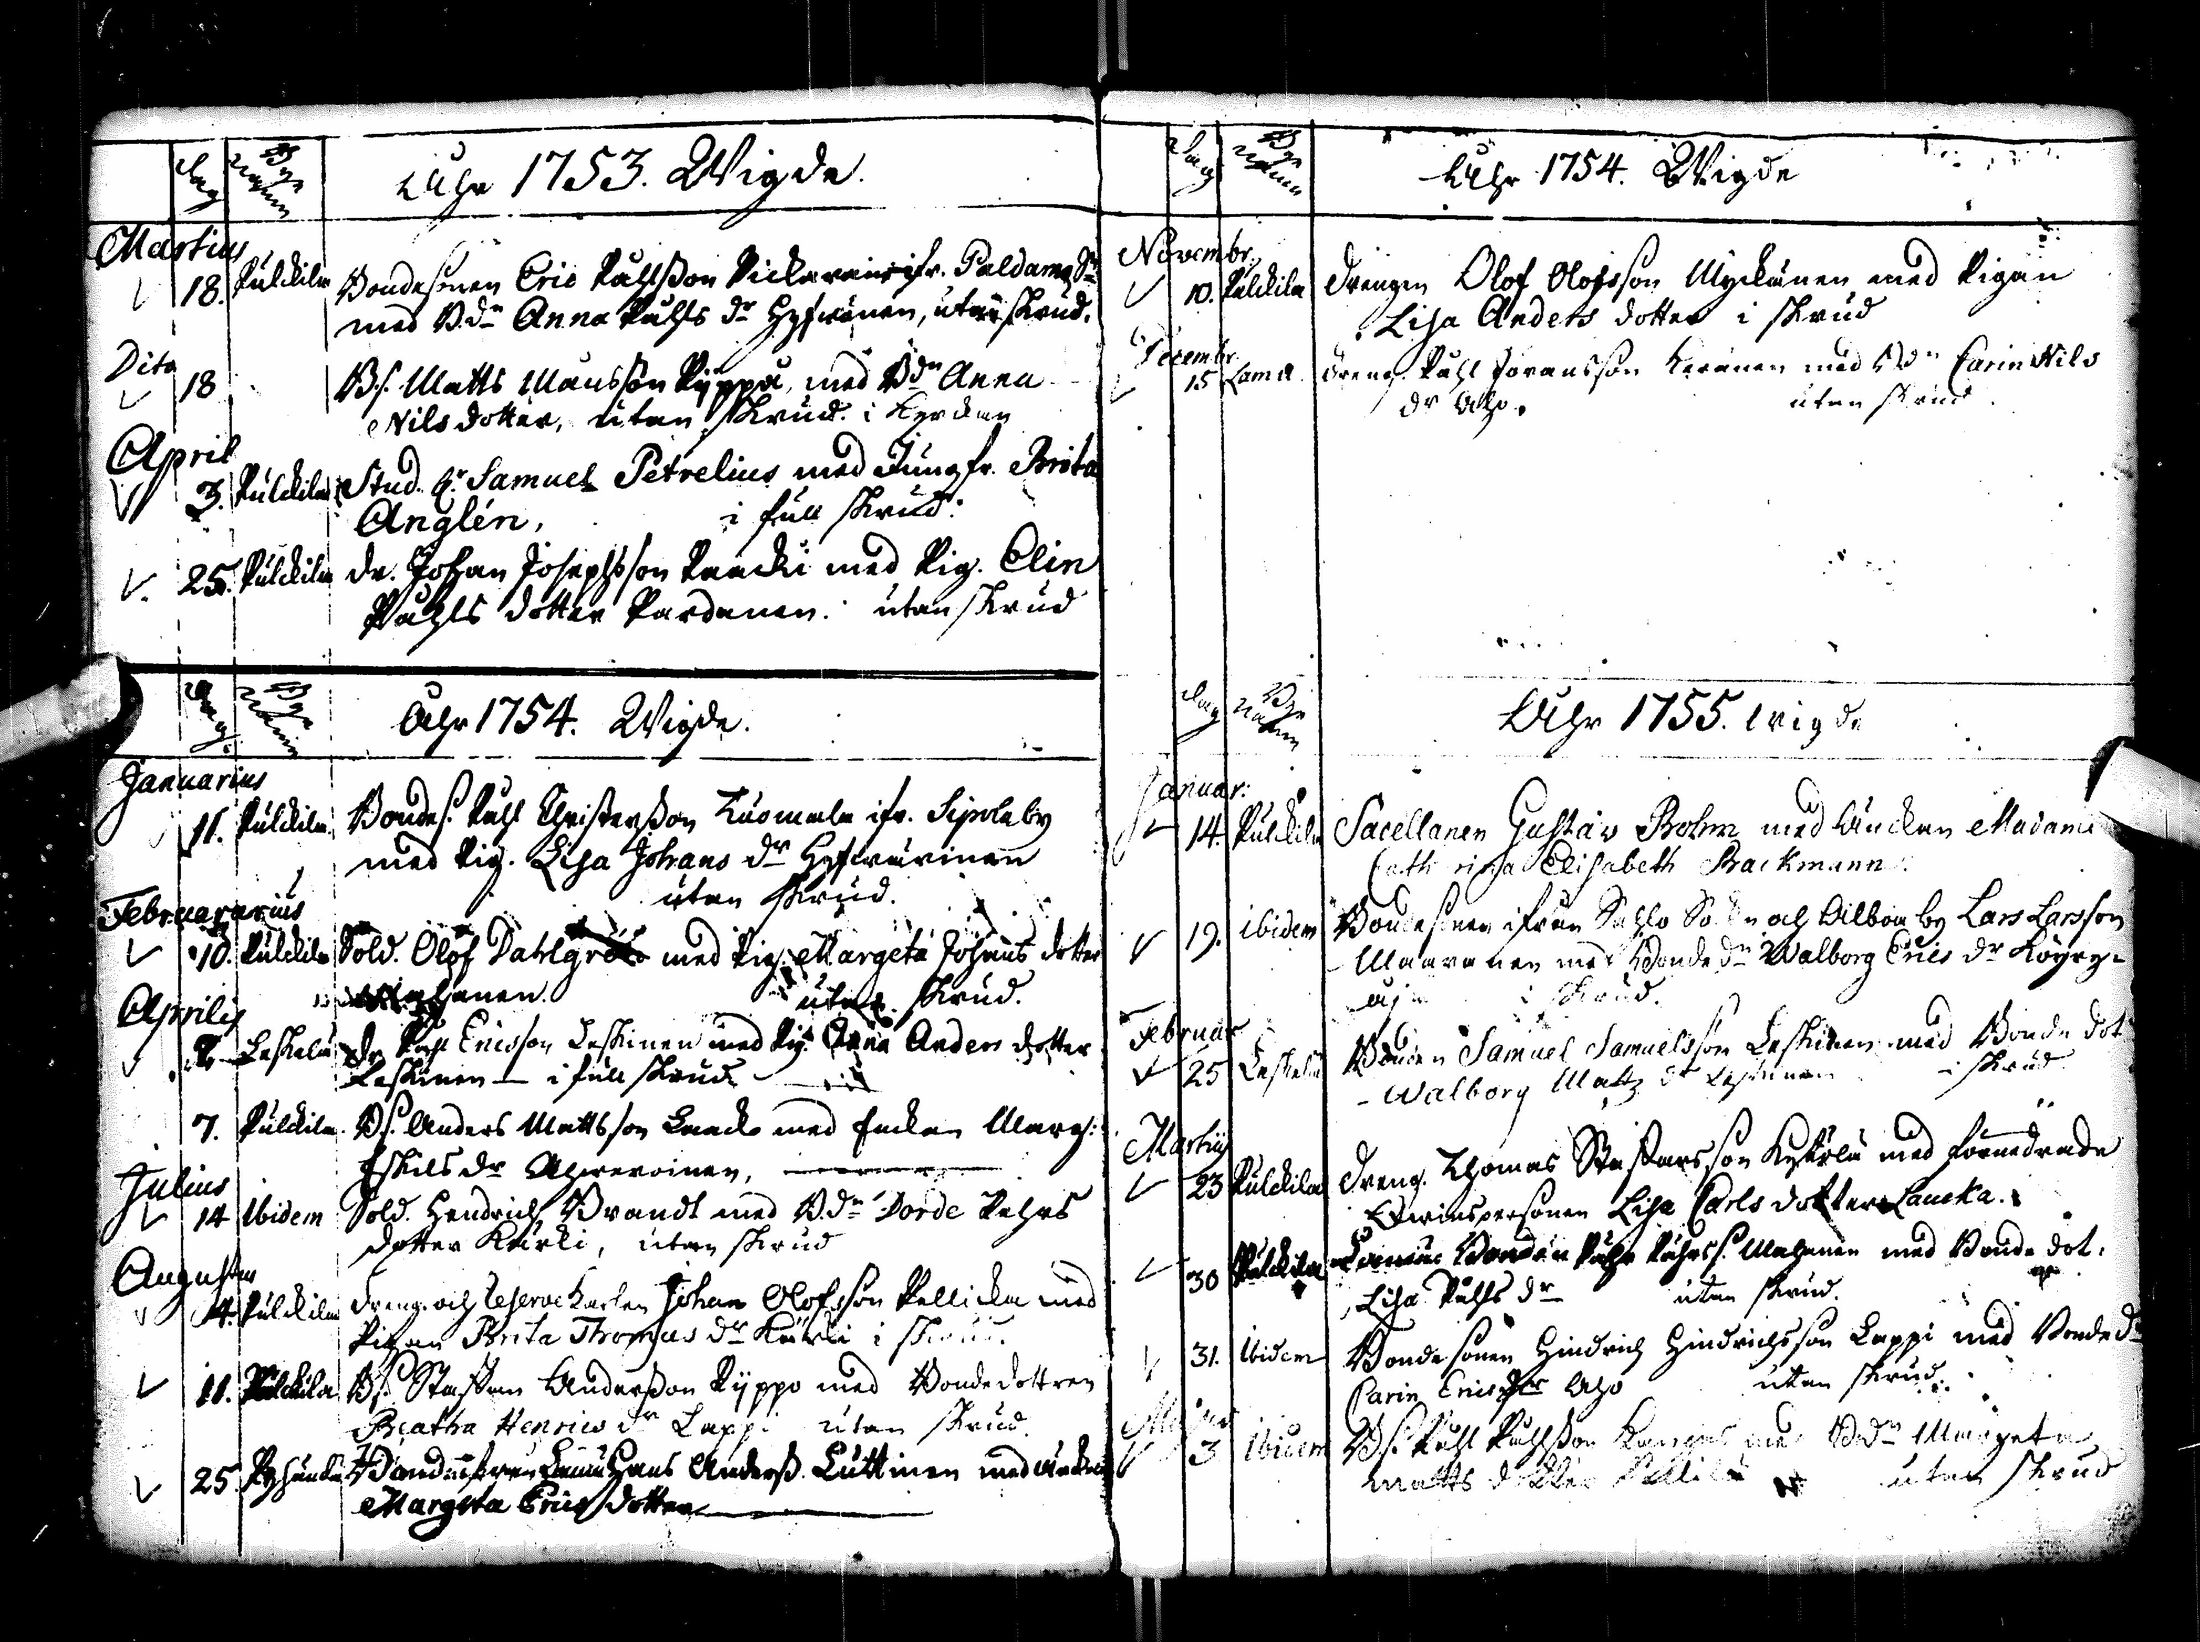 Dag
Bye
Nahmn
Åhr 1753. Wigde.
Martius
18. Pulckila Bondesonen Eric Påhlsson Pickarainen ifr. Paldamo Sn
med B.dn Anna Påhls dr Hyfwönen, utan skrud.
Dito
18 B.s. Matts Månsson Rÿppä, med Bdn Anna
Nils dotter, utan skrud. i Kyrckan
April
3. Pulckila Stud. Hr Samuel Petrelius med Jungfr. Brita
Anglén, i full skrud.
25. Pulckila dr. Johan Josephsson Raacki med Pig. Elin
Påhls dotter Pardanen. utan skrud
Dag
Bye
Nahmn
Åhr 1754. Wigde.
Januarius
11. Pulckila Bondes. Påhl Christersson Tuomala ifr. Sipola by
med Pig. Lisa Johans dr Hyfwärinen
utan skrud.
Februararius
10. Pulckila Sold. Olof Dahlgrö med Pig. Margeta Johans dotter
utan skrud.
Aprilis
Leskelä dr Påhl Ericsson Leskinen med Pig. Anders dotter
Leskinen — i full skrud
7. Pulckila. B.s. Anders Mattsson Laack med Enckan Marg:
Eskils dr
Julius
14 Ibidem Sold. Hendrich Brandt med B.dn Dorde Pehrs
dotter Kärki, utan skrud
Augustus
4. Pulckila Dreng. och Reserve Karlen Johan Olofsson Pellicka med
Pigan Brita Thomas dr Kärki i skrud.
11. Pulckila B.s. Staffan Andersson Rÿppo med Bondedottren
Beatha Henrics dr Lappi utan skrud.
25. Pyhändä Hans Anderss. Luttinen med Änckan
Margeta Erics dotter
Dag
Bye
Nahmn
Åhr 1754. Wigde
Novembr.
10. Pulckila Drengen Olof Olofsson Myckänen med Pigan
Lisa Anders dotter i skrud
Decembr.
15 Lamu Dreng. Påhl Joransson Keränen med B.dn Carin Nils
dr Aho. utan skrud.
Dag
Bye
Nahmn
Åhr 1755. wigde
Januar:
14. Pulckila Sacellanen Gustav Bohm med Änckan Madame
Catharina Elisabeth Backmann.
19. ibidem Bondesonen ifrån Sahlo Sokn och Ailboa by Lars Larsson
Maaranen med Bonde dn Walborg Erics dr Köyry-
i skrud.
Februar
25 Leskelä Bonden Samuel Samuelsson Leskinen med Bonde dot
Walborg Matts dr Leskinen i skrud
Martij
23 Pulckila Dreng. Thomas Staffansson Kykölä med förnedrade
Qwinspersonen Lisa Carls dotter Laucka.
30 Pulckila Bonden Påhl Påhrss. Mahanen med Bonde dot.
Lisa Påhls dr utan skrud.
31. Ibidem Bondesonen Hindrich Hindrichsson Lappi med Bonde dr
Carin Erics dr Aho utan skrud.
Majus
3 Ibidem B.s. Påhl Påhlsson Kangas med B.dn Margeta
Matts dotter utan skrud